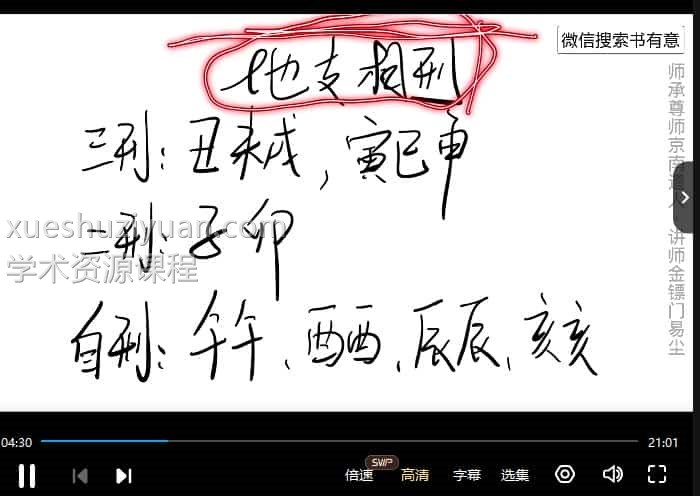 微信搜索书有意
地支相刑
三刑：丑未戌，寅巳申
二刑：子卯
自刑：午午、酉酉、辰辰、亥亥
xueshuziyuan.com
学术资源课程
师承尊师京南道人 讲师金镖门易尘
04:30
21:01
倍速
SVIP
高清
字幕
选集